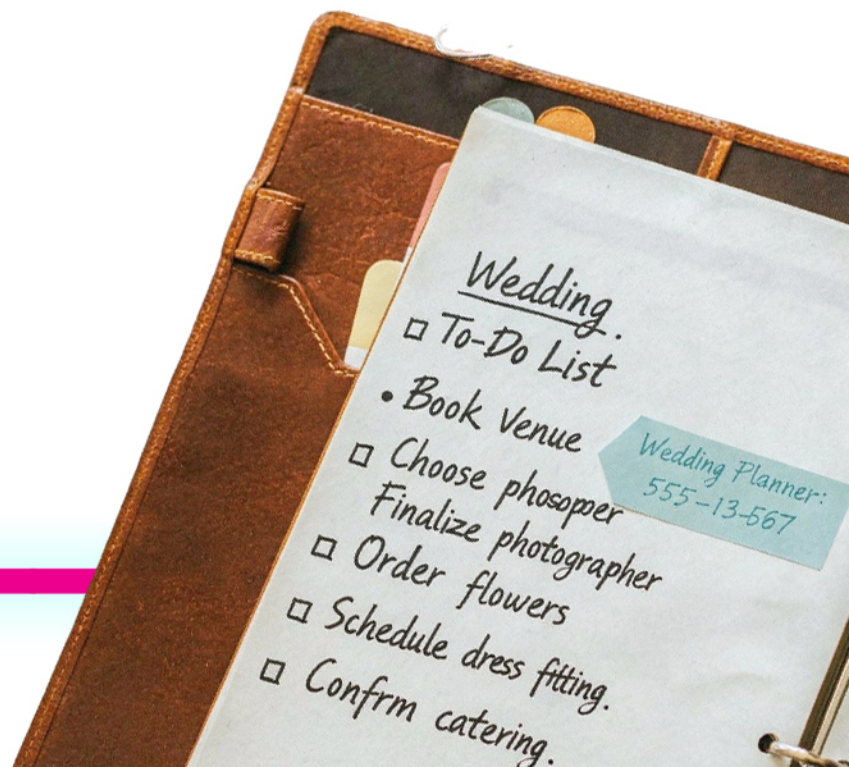 Wedding.
To-Do List
Book Venue
Choose phosopper
Finalize photographer
Order flowers
Schedule dress fitting.
Confrm catering.
Wedding Planner:
555-13-567